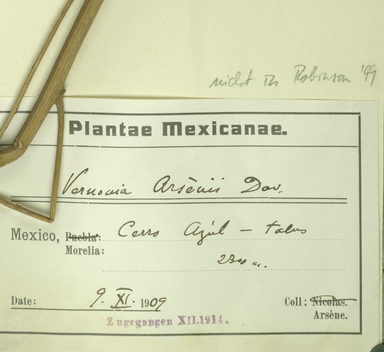 nicht in Robinson '99
Plantae Mexicanae.
Vernonia Arsènii Dav.
Mexico, Puebla: Cerro Azul – talus
Morelia: 2300 m.
Date: 9. XI. 1909 Coll: Nicolas.
Arsène.
Zugegangen XII.1914.